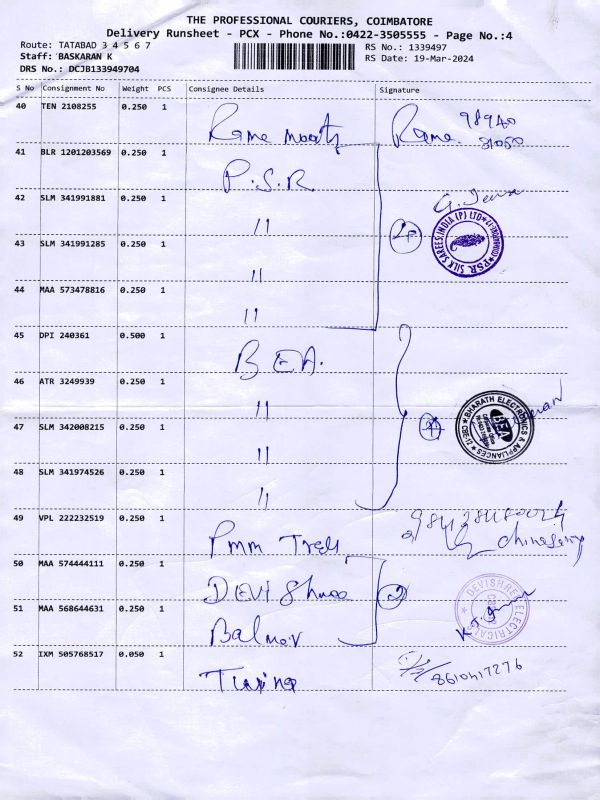 THE PROFESSIONAL COURIERS, COIMBATORE
Delivery Runsheet - PCX - Phone No.:0422-3505555 - Page No.:4
Route: TATABAD 3 4 5 6 7
Staff: BASKARAN K
DRS No.: DCJB133949704
RS No.: 1339497
RS Date: 19-Mar-2024
S No Consignment No Weight PCS Consignee Details Signature
40 TEN 2108255 0.250 1 Rama Moorty Rama. 98940
31050
41 BLR 1201203569 0.250 1 P.S.R
42 SLM 341991881 0.250 1 〃
43 SLM 341991285 0.250 1 〃
44 MAA 573478816 0.250 1 〃
P.S.R. SILK SAREES INDIA (P) LTD
45 DPI 240361 0.500 1 BEA.
46 ATR 3249939 0.250 1 〃
47 SLM 342008215 0.250 1 〃
48 SLM 341974526 0.250 1 〃
BHARATH ELECTRONICS & APPLIANCES
BEA
CBE-12
49 VPL 222232519 0.250 1 Pmm
50 MAA 574444111 0.250 1 DEVI
51 MAA 568644631 0.250 1
DEVISHREE ELECTRICALS
52 IXM 505768517 0.050 1 8610417276